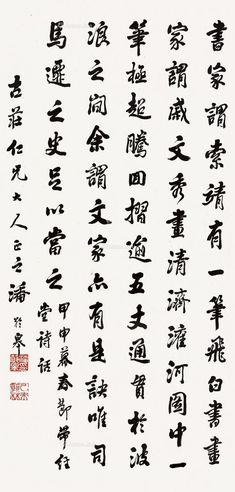 書家謂索靖有一筆飛白書畫
家謂戚文秀畫清濟灌河圖中一
筆極超騰回摺逾五丈通貫於波
浪之間余謂文家亦有是訣唯司
馬遷之史足以當之
甲申暮春節帶經
堂詩話
古莊仁兄大人正之 潘齡皋